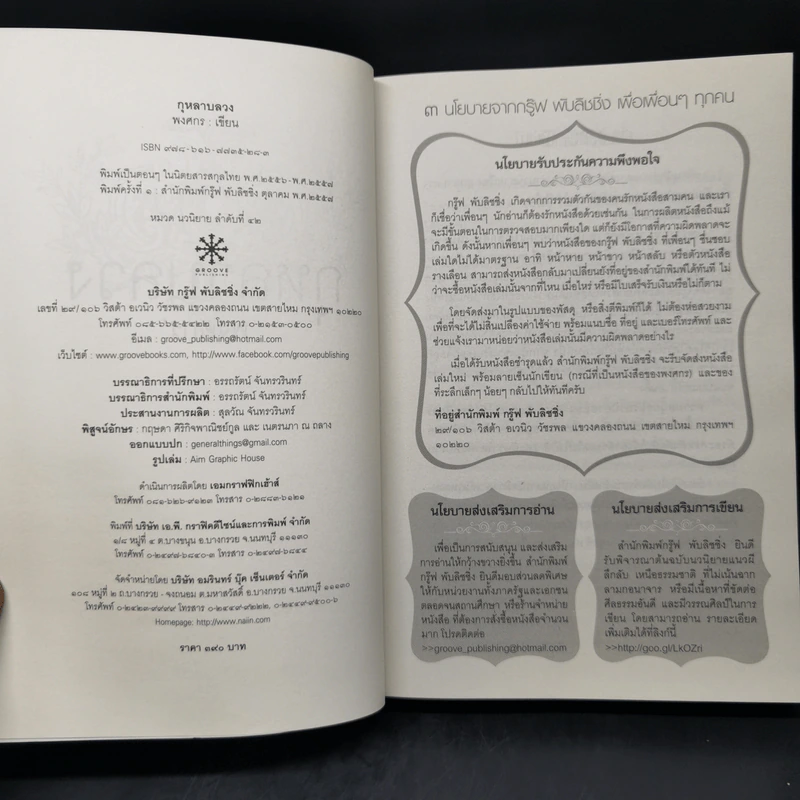 กุหลาบลวง
พงศกร : เขียน
ISBN ๙๗๘-๖๑๖-๗๗๓๕-๒๘-๓
พิมพ์เป็นตอนๆ ในนิตยสารสกุลไทย พ.ศ.๒๕๕๖-พ.ศ.๒๕๕๗
พิมพ์ครั้งที่ ๑ : สำนักพิมพ์กรู๊ฟ พับลิชชิ่ง ตุลาคม พ.ศ.๒๕๕๗
หมวด นวนิยาย ลำดับที่ ๔๒
GROOVE
PUBLISHING
บริษัท กรู๊ฟ พับลิชชิ่ง จำกัด
เลขที่ ๒๙/๑๐๖ วิสต้า อเวนิว วัชรพล แขวงคลองถนน เขตสายไหม กรุงเทพฯ ๑๐๒๒๐
โทรศัพท์ ๐๘๕-๖๖๕-๕๔๒๒ โทรสาร ๐-๒๑๕๓-๐๕๐๐
อีเมล : groove_publishing@hotmail.com
เว็บไซต์ : www.groovebooks.com, http://www.facebook.com/groovepublishing
บรรณาธิการที่ปรึกษา : อรรถรัตน์ จันทรวรินทร์
บรรณาธิการสำนักพิมพ์ : อรรถรัตน์ จันทรวรินทร์
ประสานงานการผลิต : สุลวัณ จันทรวรินทร์
พิสูจน์อักษร : กฤษดา ศิริกิจพาณิชย์กูล และ เนตรนภา ณ ถลาง
ออกแบบปก : generalthings@gmail.com
รูปเล่ม : Aim Graphic House
ดำเนินการผลิตโดย เอมกราฟฟิกเฮ้าส์
โทรศัพท์ ๐๘๑-๖๒๖-๙๑๒๓ โทรสาร ๐-๒๘๘๓-๖๑๒๑
พิมพ์ที่ บริษัท เอ.พี. กราฟิคดีไซน์และการพิมพ์ จำกัด
๑/๘ หมู่ที่ ๔ ต.บางขนุน อ.บางกรวย จ.นนทบุรี ๑๑๑๓๐
โทรศัพท์ ๐-๒๔๙๗-๖๘๔๐-๓ โทรสาร ๐-๒๔๙๗-๖๘๔๔
จัดจำหน่ายโดย บริษัท อมรินทร์ บุ๊ค เซ็นเตอร์ จำกัด
๑๐๘ หมู่ที่ ๒ ถ.บางกรวย - จงถนอม ต.มหาสวัสดิ์ อ.บางกรวย จ.นนทบุรี ๑๑๑๓๐
โทรศัพท์ ๐-๒๔๒๓-๙๙๙๙ โทรสาร ๐-๒๔๔๙-๙๒๒๒, ๐-๒๔๔๙-๙๕๐๐-๖
Homepage: http://www.naiin.com
ราคา ๓๙๐ บาท
๓ นโยบายจากกรู๊ฟ พับลิชชิ่ง เพื่อเพื่อนๆ ทุกคน
นโยบายรับประกันความพึงพอใจ
กรู๊ฟ พับลิชชิ่ง เกิดจากการรวมตัวกันของคนรักหนังสือสามคน และเรา
ก็เชื่อว่าเพื่อนๆ นักอ่านก็ต้องรักหนังสือด้วยเช่นกัน ในการผลิตหนังสือถึงแม้
จะมีขั้นตอนในการตรวจสอบมากเพียงใด แต่ก็ยังมีโอกาสที่ความผิดพลาดจะ
เกิดขึ้น ดังนั้นหากเพื่อนๆ พบว่าหนังสือของกรู๊ฟ พับลิชชิ่ง ที่เพื่อนๆ ชื่นชอบ
เล่มใดไม่ได้มาตรฐาน อาทิ หน้าหาย หน้าขาว หน้าสลับ หรือตัวหนังสือ
รางเลือน สามารถส่งหนังสือกลับมาเปลี่ยนยังที่อยู่ของสำนักพิมพ์ได้ทันที ไม่
ว่าจะซื้อหนังสือเล่มนั้นจากที่ไหน เมื่อไหร่ หรือมีใบเสร็จรับเงินหรือไม่ก็ตาม
โดยจัดส่งมาในรูปแบบของพัสดุ หรือสิ่งตีพิมพ์ก็ได้ ไม่ต้องห่อสวยงาม
เพื่อที่จะได้ไม่สิ้นเปลืองค่าใช้จ่าย พร้อมแนบชื่อ ที่อยู่ และเบอร์โทรศัพท์ และ
ช่วยแจ้งเรามาหน่อยว่าหนังสือเล่มนั้นมีความผิดพลาดอย่างไร
เมื่อได้รับหนังสือชำรุดแล้ว สำนักพิมพ์กรู๊ฟ พับลิชชิ่ง จะรีบจัดส่งหนังสือ
เล่มใหม่ พร้อมลายเซ็นนักเขียน (กรณีที่เป็นหนังสือของพงศกร) และของ
ที่ระลึกเล็กๆ น้อยๆ กลับไปให้ทันทีครับ
ที่อยู่สำนักพิมพ์ กรู๊ฟ พับลิชชิ่ง
๒๙/๑๐๖ วิสต้า อเวนิว วัชรพล แขวงคลองถนน เขตสายไหม กรุงเทพฯ
๑๐๒๒๐
นโยบายส่งเสริมการอ่าน
เพื่อเป็นการสนับสนุน และส่งเสริม
การอ่านให้กว้างขวางยิ่งขึ้น สำนักพิมพ์
กรู๊ฟ พับลิชชิ่ง ยินดีมอบส่วนลดพิเศษ
ให้กับหน่วยงานทั้งภาครัฐและเอกชน
ตลอดจนสถานศึกษา หรือร้านจำหน่าย
หนังสือ ที่ต้องการสั่งซื้อหนังสือจำนวน
มาก โปรดติดต่อ
>>groove_publishing@hotmail.com
นโยบายส่งเสริมการเขียน
สำนักพิมพ์กรู๊ฟ พับลิชชิ่ง ยินดี
รับพิจารณาต้นฉบับนวนิยายแนวผี
ลึกลับ เหนือธรรมชาติ ที่ไม่เน้นฉาก
ลามกอนาจาร หรือมีเนื้อหาที่ขัดต่อ
ศีลธรรมอันดี และมีวรรณศิลป์ในการ
เขียน โดยสามารถอ่าน รายละเอียด
เพิ่มเติมได้ที่ลิงก์นี้
>>http://goo.gl/LkOZri